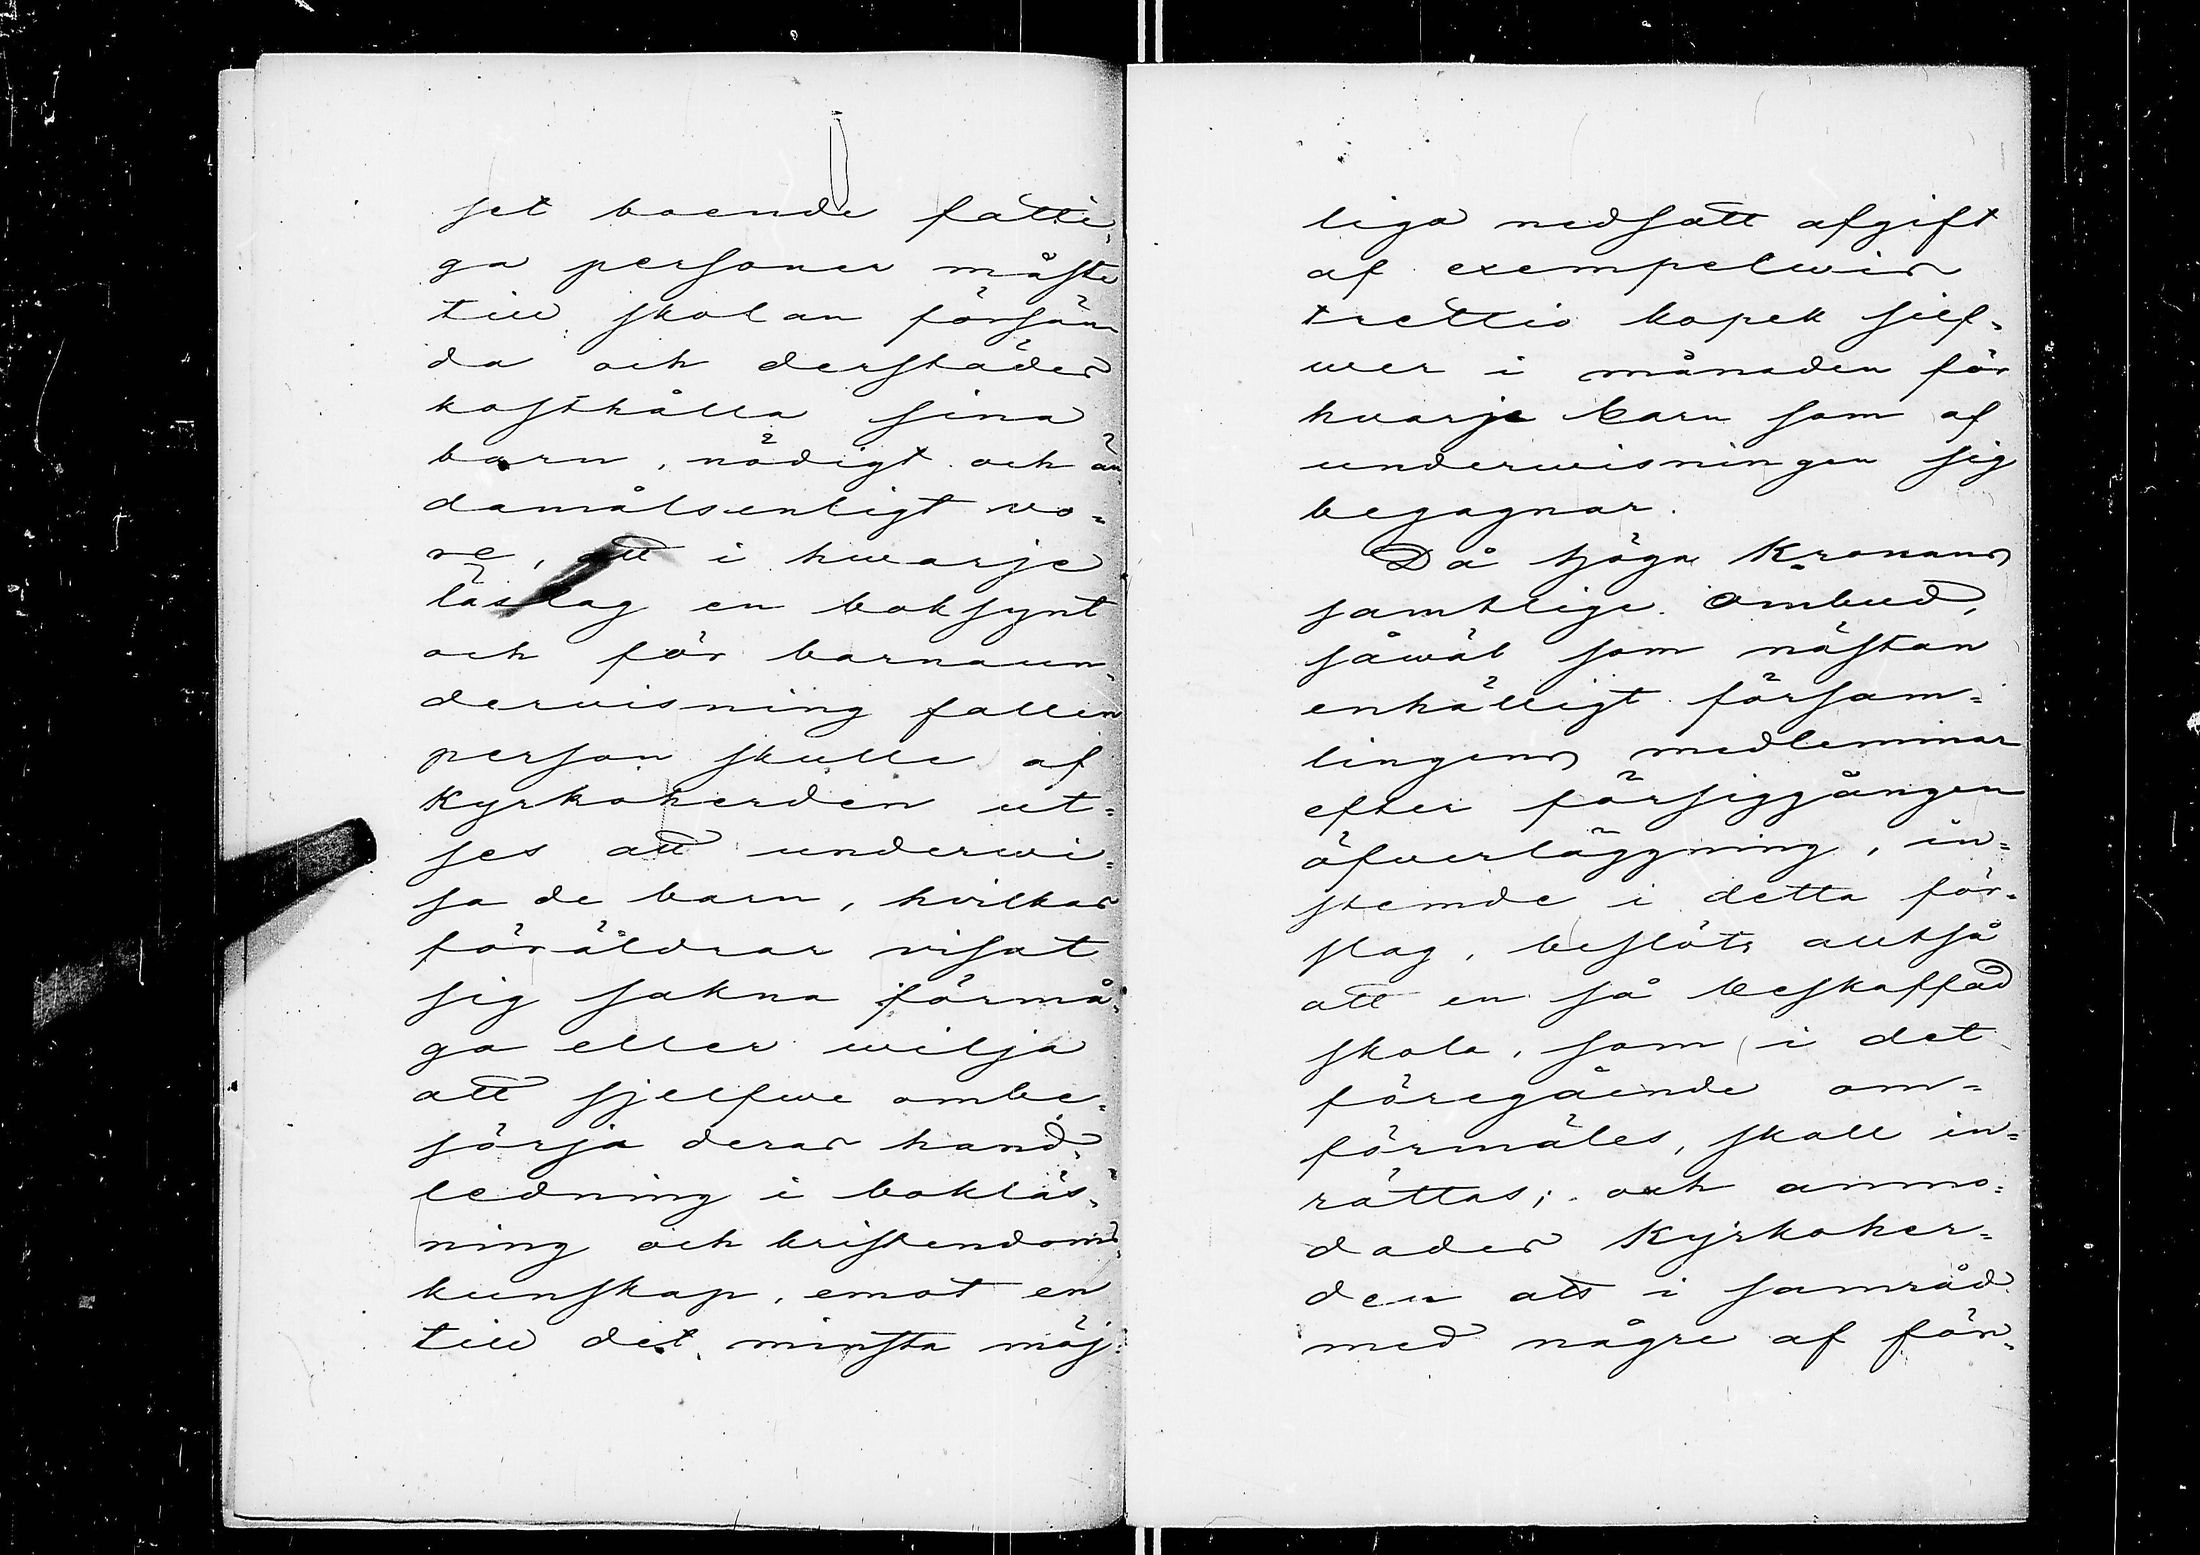 set boende fatti-
ga personer måste
till skolan försän
da och derstädes
kosthålla sina
barn, nödigt och än
damålsenligt wo-
re, att i hwarje
läslag en boksynt
och för barnaun-
dervisning fallen
person skulle af
Kyrkoherden ut-
ses att underwi-
sa de barn, hvilkas
föräldrar visat
sig sakna förmå-
ga eller wilja
att sjelfwe ombe-
sörja deras hand-
ledning i bokläs-
ning och kristendoms-
kunskap, emot en
till det minsta möj-
liga nedsatt afgift
af exempelwis
trettio kopek silf-
wer i månaden för
hvarje barn som af
underwisningen sig
begagnar.
Då höga Kronans
samtlige ombud,
såwäl som nästan
enhälligt försam-
lingens medlemmar
efter försiggången
öfverläggning, in-
stemde i detta för-
slag, beslöts alltså
att en så beskaffad
skola, som i det
föregående om-
förmäles, skall in-
rättas; och anmo-
dades Kyrkoher-
den att i samråd
med några af för-